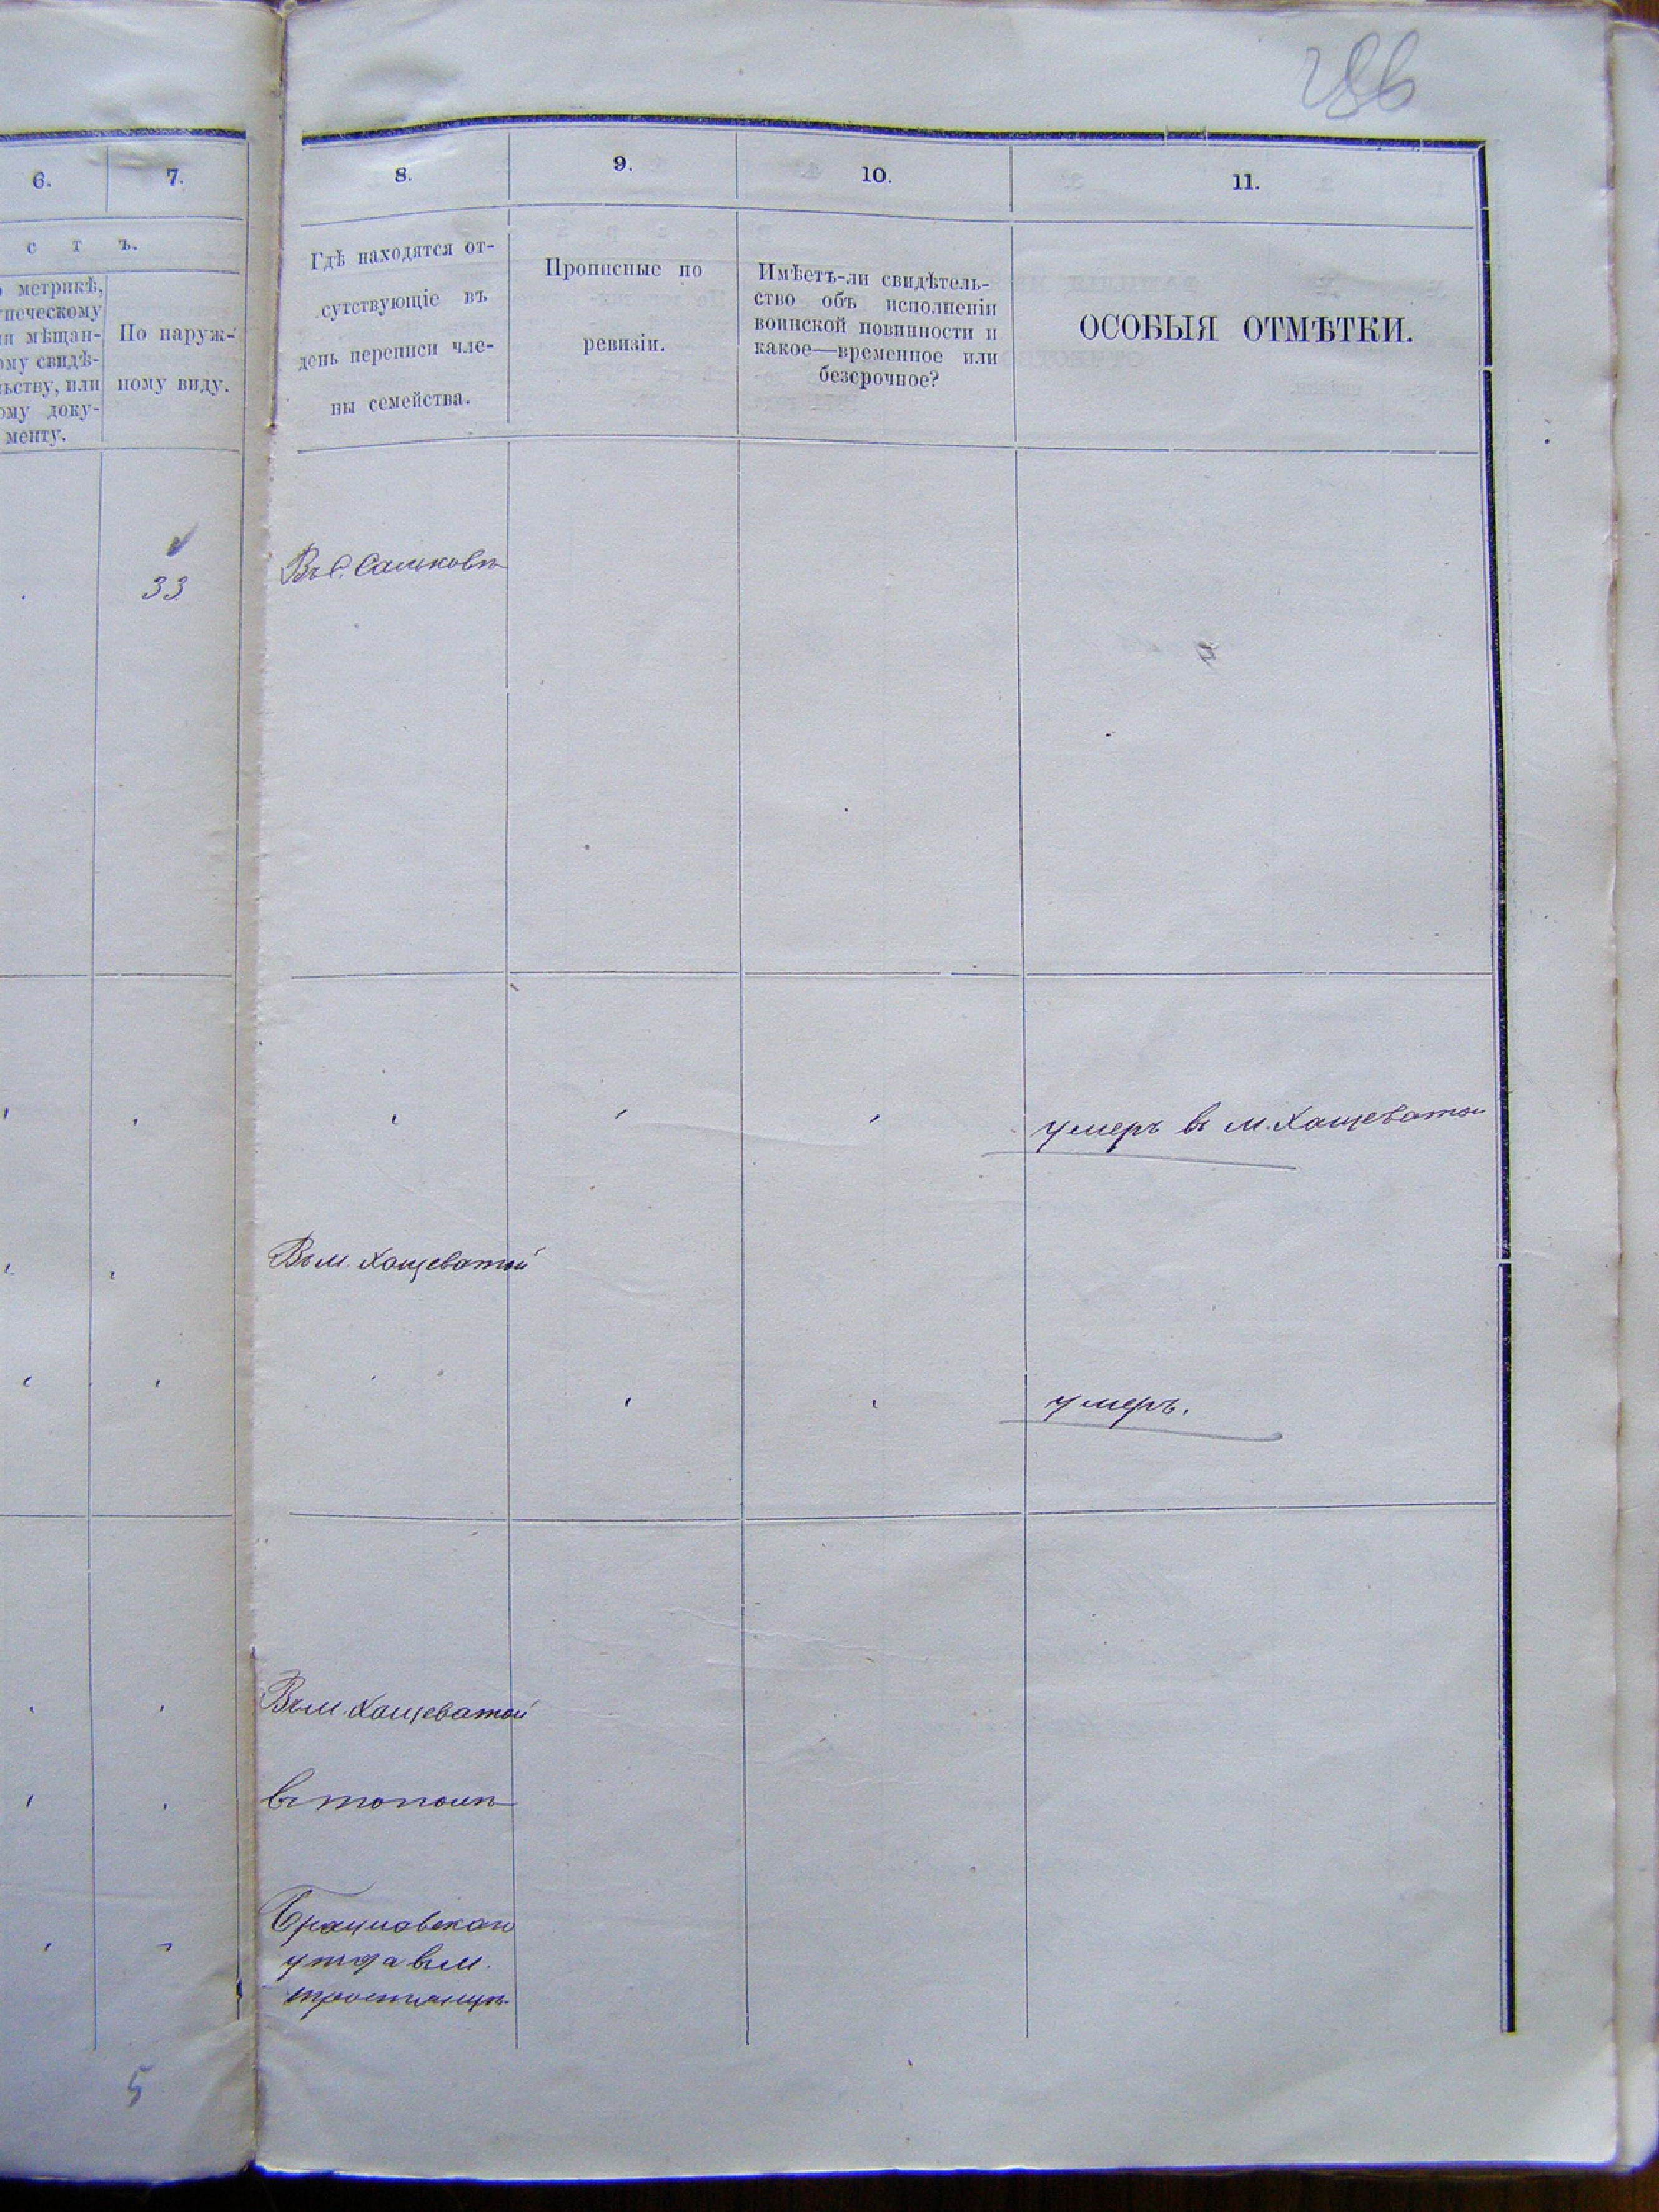 286
6.
7.
с т ъ.
метрикѣ,
мѣщан-
свидѣ-
или
доку-
менту.
По наруж-
ному виду.
33
5
8.
9.
10.
11.
Гдѣ находятся от-
сутствующіе въ
день переписи чле-
ны семейства.
Прописные по
ревизіи.
Имѣетъ-ли свидѣтель-
ство объ исполненіи
воинской повинности и
какое—временное или
безсрочное?
ОСОБЫЯ ОТМѢТКИ.
Въ С. Сальковѣ
умеръ въ м. Хащеватой
Въ м. Хащеватой
умеръ.
Въ м. Хащеватой
Брацлавскаго
уѣзда въ м.
тростянцѣ.